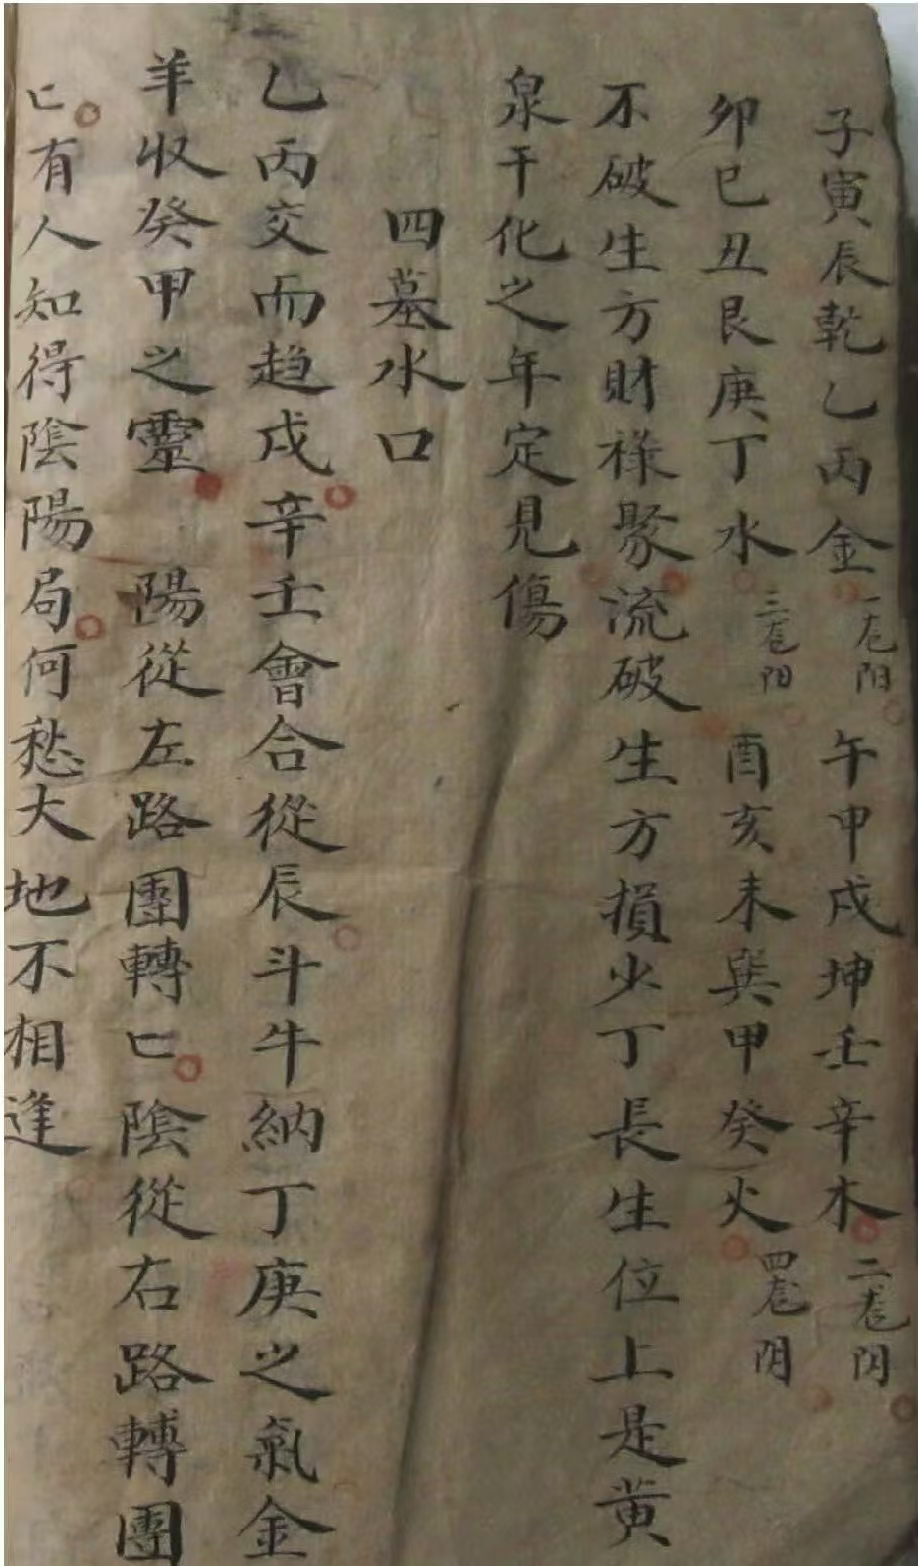 子寅辰乾乙丙金 一卷阳 午甲戌坤壬辛木 二卷阴
卯巳丑艮庚丁水 三卷阳 酉亥未巽甲癸火 四卷阴
不破生方財祿聚流破生方損少丁長生位上是黄
泉干化之年定見傷
四墓水口
乙丙交而趋戌辛壬會合從辰斗牛納丁庚之氣金
羊収癸甲之靈 陽從左路團轉匕陰從右路轉團
匕有人知得陰陽局何愁大地不相逢